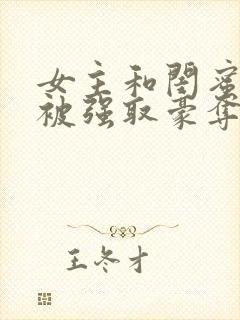 女主和闺蜜
被强取豪夺
王冬才